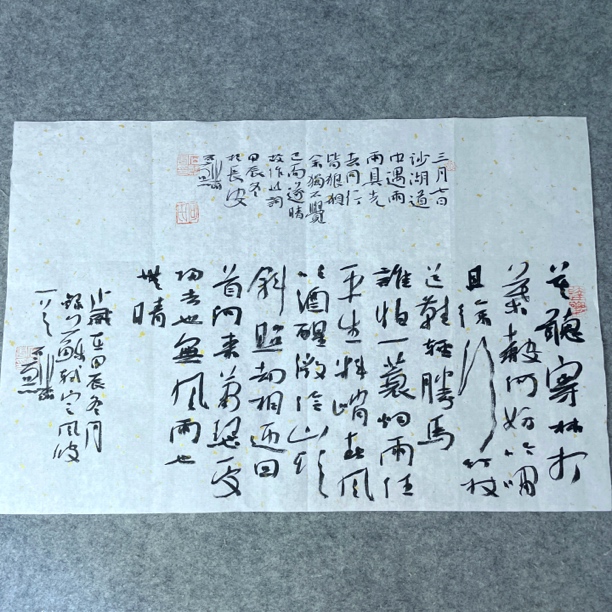 三月七日
沙湖道
中遇雨
雨具先
去同行
皆狼狽
余獨不覺
已而遂晴
故作此詞
甲辰冬
於長
莫聽穿林打
葉聲何妨吟嘯
且徐行竹杖
芒鞋輕勝馬
誰怕一蓑烟雨任
平生料峭春風
吹酒醒微冷山頭
斜照却相迎回
首向来蕭瑟處
歸去也無風雨也
無晴
歲在甲辰冬月
蘇軾定風波
一首